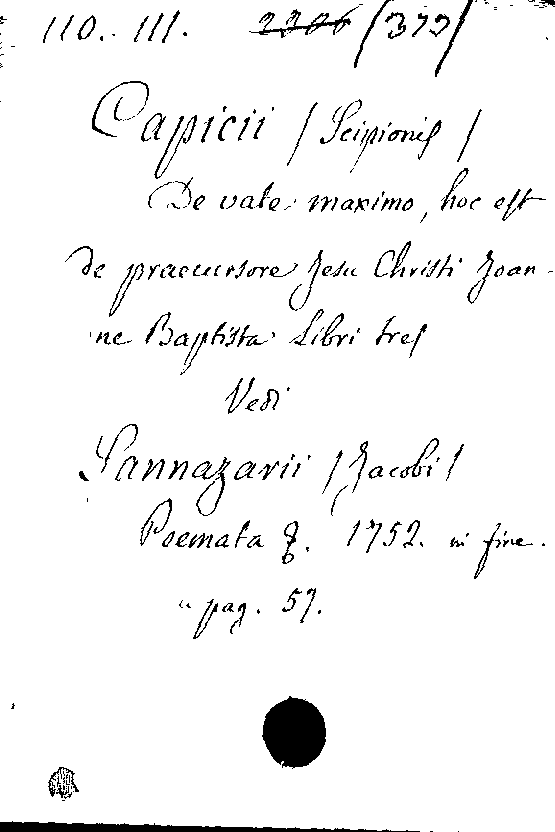 110. 111. 2306 /373/
Capicii / Scipionis /
De vate maximo, hoc est
de praecursore Jesu Christi Joan-
ne Baptista Libri tres
Vedi
Sannazarii / Jacobi /
Poemata 1752. in fine.
" pag. 57.